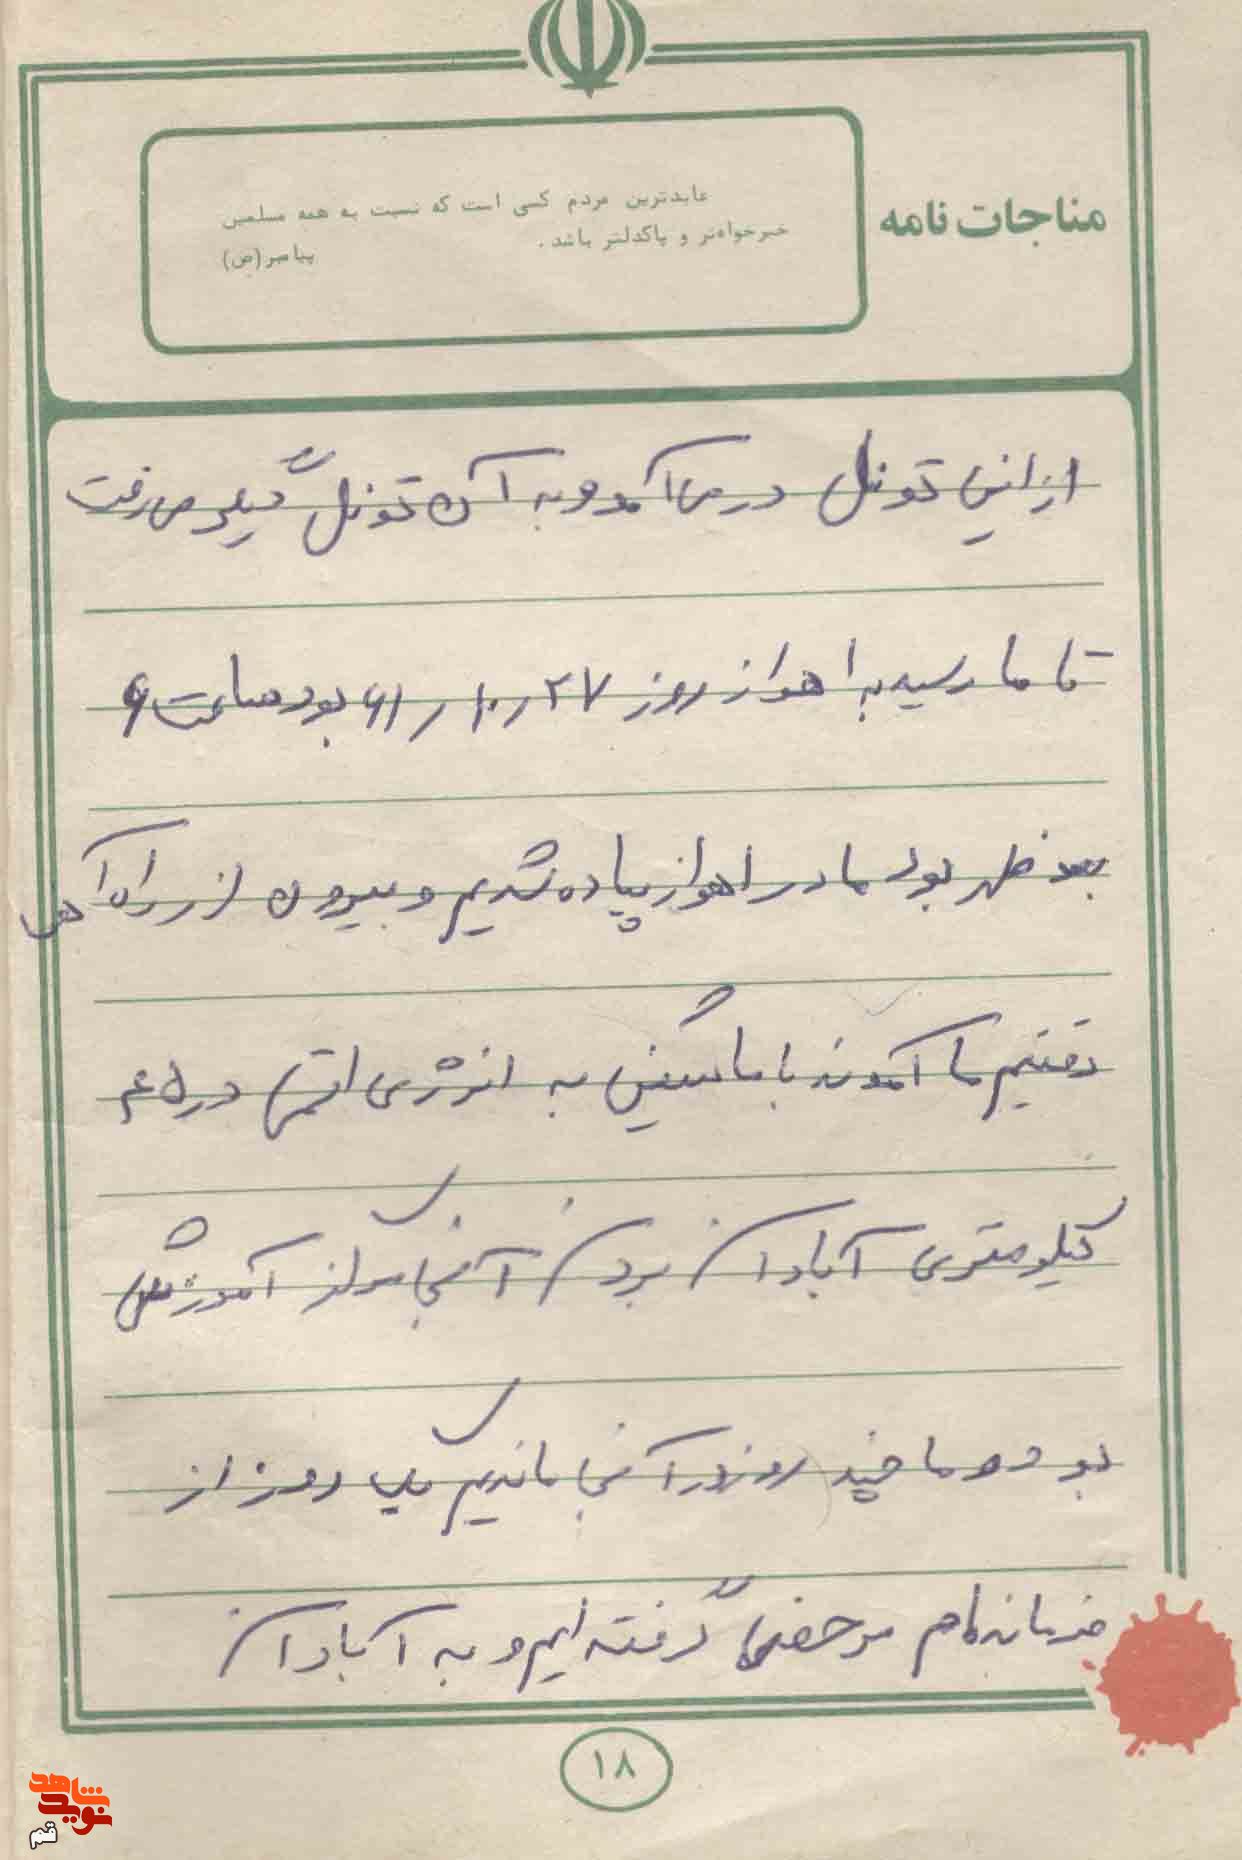 مناجات نامه
عابدترین مردم کسی است که نسبت به همه مسلمین
خیرخواه‌تر و پاکدلتر باشد.
پیامبر(ص)
از این تونل در می آمد و به آن تونل دیگر می رفت
تا ما رسید به اهواز روز ۲۷ ر ۱۰ ر ۶۱ بود ساعت ۶
بعد ظهر بود ما در اهواز پیاده شدیم و بیرون از راه آهن
رفتیم ما آمدند با ماشین به انرژی اتمی در ۴۵
کیلومتری آبادان بردن آنجا مرکز آموزش
بود و ما چند روز در آنجا ماندیم یک روز از
فرمانده‌ام مرخصی گرفته ایم و به آبادان
۱۸
نوید شاهد
قم